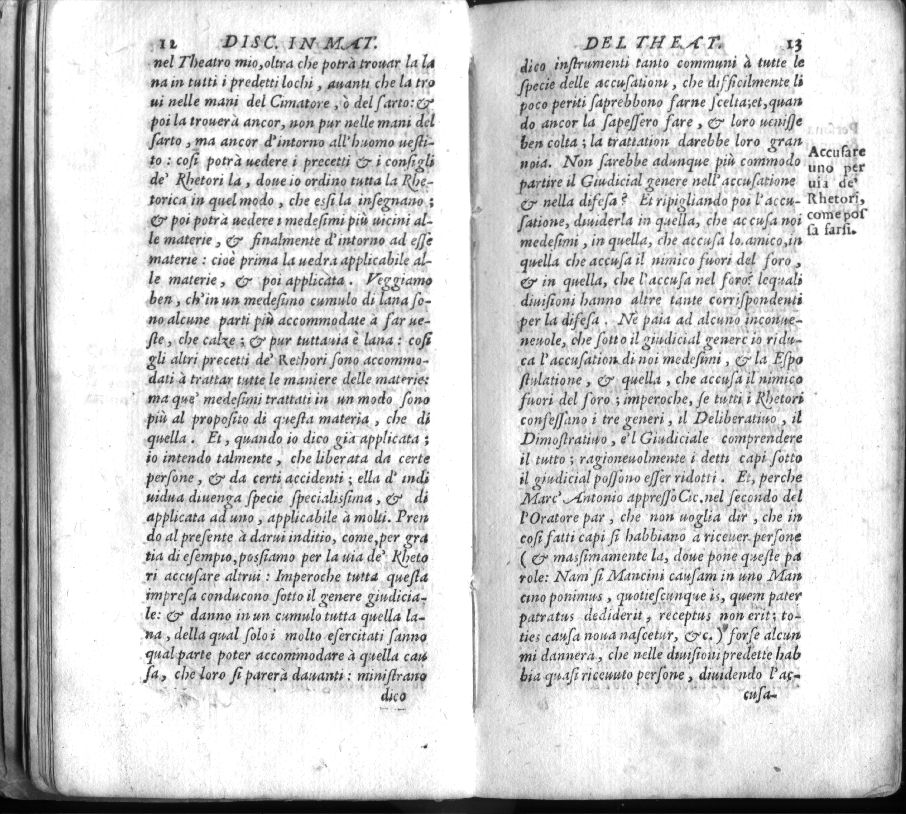 12 DISC. IN MAT.
nel Theatro mio, oltra che potrà trouar la la
na in tutti i predetti lochi, auanti che la tro
ui nelle mani del Cimatore, ò del sarto: &
poi la trouerà ancor, non pur nelle mani del
sarto, ma ancor d'intorno all'huomo uesti-
to: così potrà uedere i precetti & i consigli
de' Rhetori la, doue io ordino tutta la Rhe-
torica in quel modo, che essi la insegnano;
& poi potrà uedere i medesimi più uicini al-
le materie, & finalmente d'intorno ad esse
materie: cioè prima la uedrà applicabile al-
le materie, & poi applicata. Veggiamo
ben, ch'in un medesimo cumulo di lana so-
no alcune parti più accommodate a far ue-
ste, che calze; & pur tuttauia è lana: così
gli altri precetti de' Rethori sono accommo-
dati à trattar tutte le maniere delle materie:
ma que' medesimi trattati in un modo sono
più al proposito di questa materia, che di
quella. Et, quando io dico già applicata;
io intendo talmente, che liberata da certe
persone, & da certi accidenti; ella d' indi
uidua diuenga specie specialissima, & di
applicata ad uno, applicabile à molti. Pren
do al presente à darui inditio, come, per gra
tia di esempio, possiamo per la uia de' Rheto
ri accusare altrui: Imperoche tutta questa
impresa conducono sotto il genere giudicia-
le: & danno in un cumulo tutta quella la-
na, della qual solo i molto esercitati sanno
qual parte poter accommodare à quella cau
sa, che loro si parerà dauanti: ministrano
dico
DEL THEAT. 13
dico instrumenti tanto communi à tutte le
specie delle accusationi, che difficilmente li
poco periti saprebbono farne scelta; et, quan
do ancor la sapessero fare, & loro uenisse
ben colta; la trattation darebbe loro gran
noia. Non sarebbe adunque più commodo
partire il Giudicial genere nell'accusatione
& nella difesa? Et ripigliando poi l'accu-
satione, diuiderla in quella, che accusa noi
medesimi, in quella, che accusa lo amico, in
quella che accusa il nimico fuori del foro,
& in quella, che l'accusa nel foro? lequali
diuisioni hanno altre tante corrispondenti
per la difesa. Ne paia ad alcuno inconue-
neuole, che sotto il giudicial genere io ridu-
ca l'accusation di noi medesimi, & la Espo
stulatione, & quella, che accusa il nimico
fuori del foro; imperoche, se tutti i Rhetori
confessano i tre generi, il Deliberatiuo, il
Dimostratiuo, e'l Giudiciale comprendere
il tutto; ragioneuolmente i detti capi sotto
il giudicial possono esser ridotti. Et, perche
Marc' Antonio appresso Cic. nel secondo del
l'Oratore par, che non uoglia dir, che in
così fatti capi si habbiano à riceuer persone
(& massimamente la, doue pone queste pa
role: Nam si Mancini causam in uno Man
cino ponimus, quotiescunque is, quem pater
patratus dediderit, receptus non erit; to-
ties causa noua nascetur, &c.) forse alcun
mi dannerà, che nelle diuisioni predette hab
bia quasi riceuuto persone, diuidendo l'ac-
cusa-
Accusare
uno per
uia de'
Rhetori,
come pos
sa farsi.